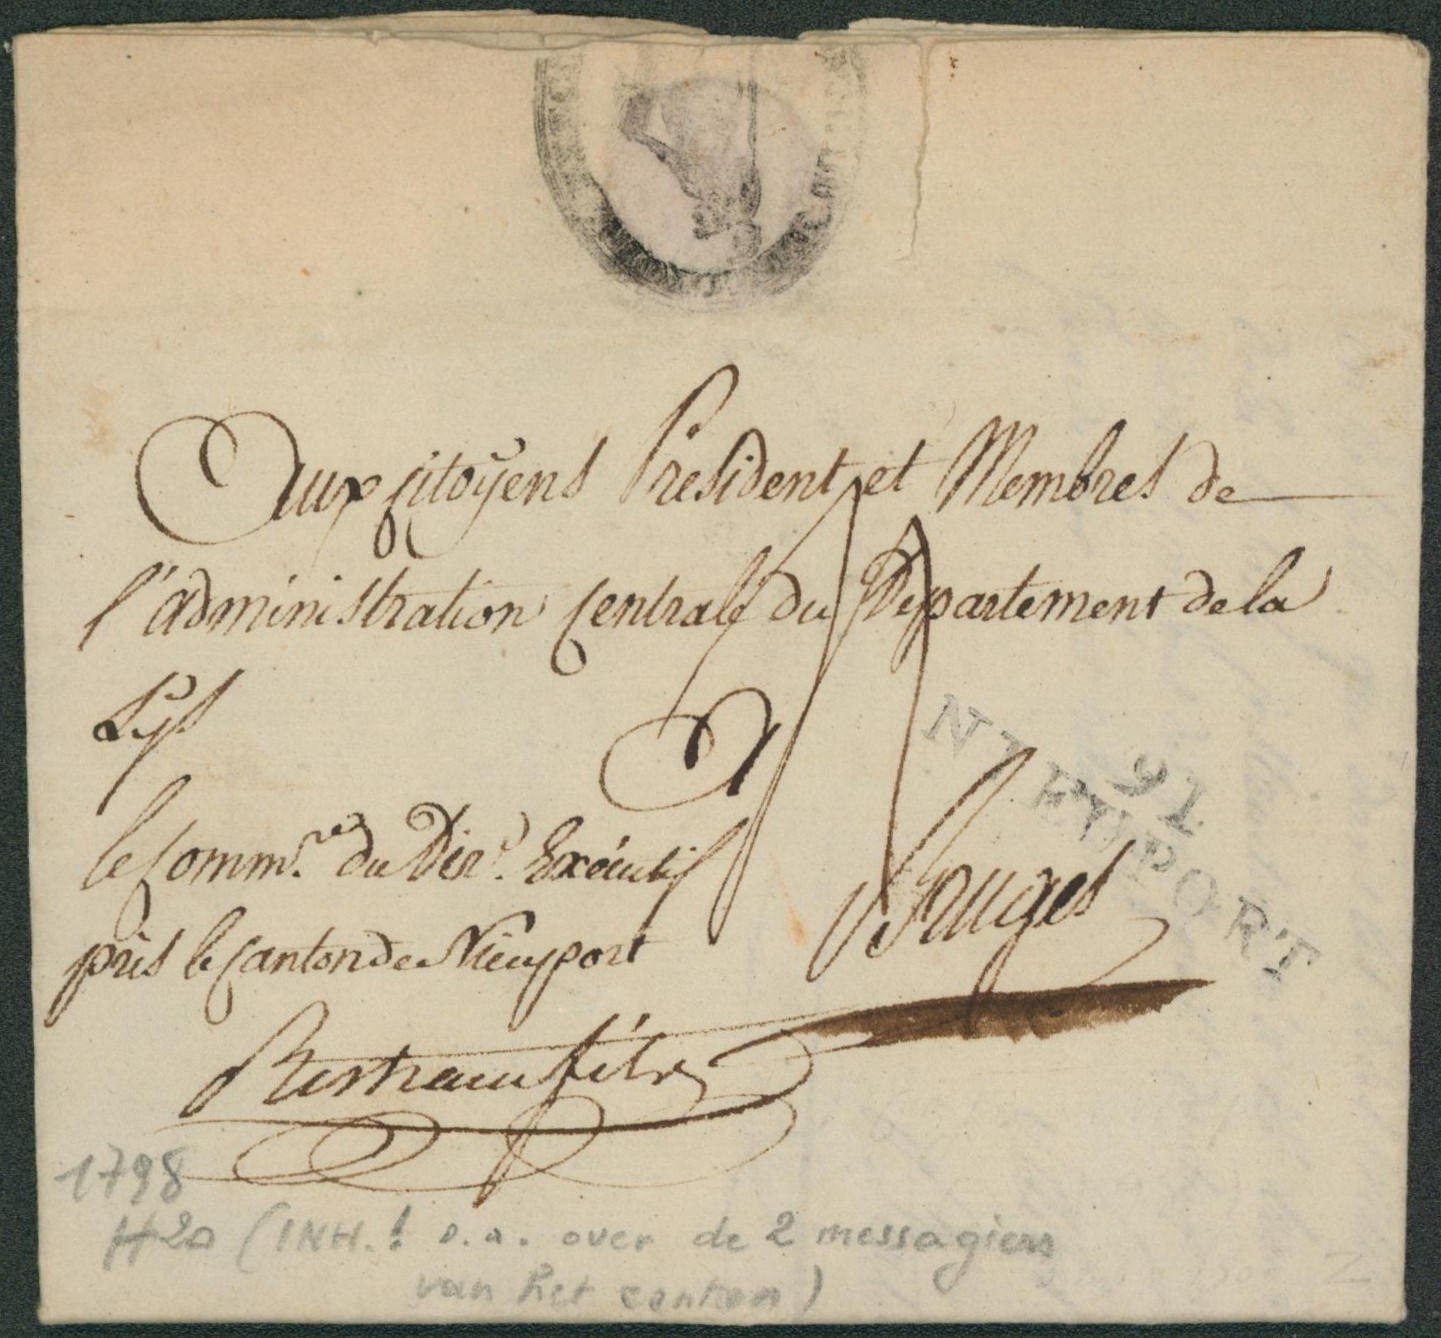 Aux Citoyens President et Membres de
l'administration Centrale du Departement de la
Lys
A
Bruges
91
NIEUPORT
le Comm.re du Dir.e Exécutif
près le Canton de Nieuport
1798
H20 (INH.! o.a. over de 2 messagiers
van het canton)